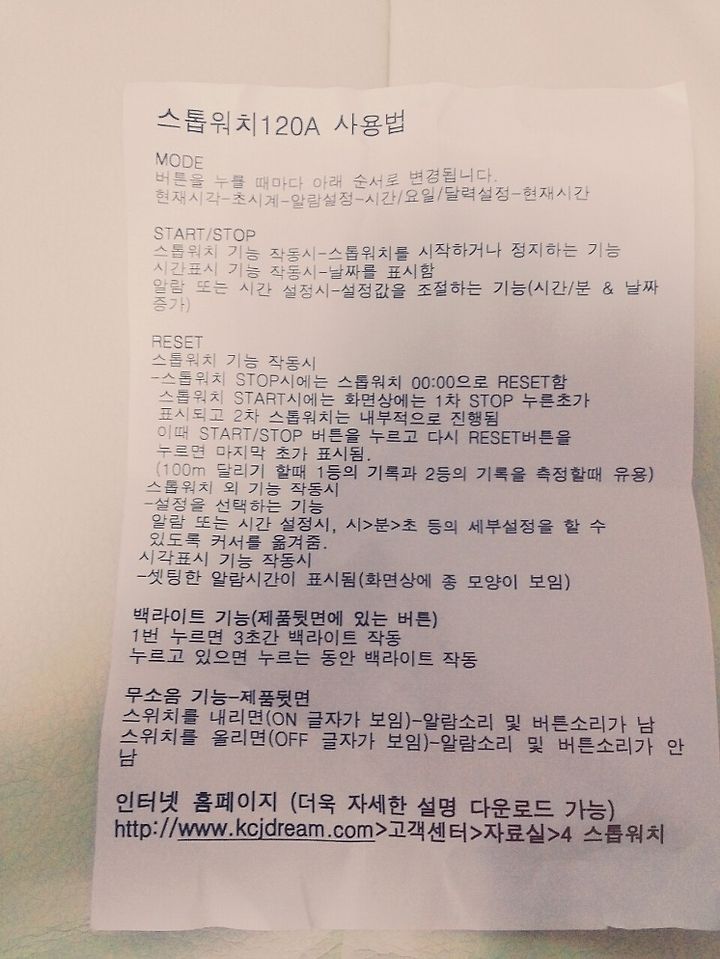 스톱워치120A 사용법
MODE
버튼을 누를 때마다 아래 순서로 변경됩니다.
현재시각-초시계-알람설정-시간/요일/달력설정-현재시간
START/STOP
스톱워치 기능 작동시-스톱워치를 시작하거나 정지하는 기능
시간표시 기능 작동시-날짜를 표시함
알람 또는 시간 설정시-설정값을 조절하는 기능(시간/분 & 날짜
증가)
RESET
스톱워치 기능 작동시
-스톱워치 STOP시에는 스톱워치 00:00으로 RESET함
스톱워치 START시에는 화면상에는 1차 STOP 누른초가
표시되고 2차 스톱워치는 내부적으로 진행됨
이때 START/STOP 버튼을 누르고 다시 RESET버튼을
누르면 마지막 초가 표시됨.
(100m 달리기 할때 1등의 기록과 2등의 기록을 측정할때 유용)
스톱워치 외 기능 작동시
-설정을 선택하는 기능
알람 또는 시간 설정시, 시>분>초 등의 세부설정을 할 수
있도록 커서를 옮겨줌.
시각표시 기능 작동시
-셋팅한 알람시간이 표시됨(화면상에 종 모양이 보임)
백라이트 기능(제품뒷면에 있는 버튼)
1번 누르면 3초간 백라이트 작동
누르고 있으면 누르는 동안 백라이트 작동
무소음 기능-제품뒷면
스위치를 내리면(ON 글자가 보임)-알람소리 및 버튼소리가 남
스위치를 올리면(OFF 글자가 보임)-알람소리 및 버튼소리가 안
남
인터넷 홈페이지 (더욱 자세한 설명 다운로드 가능)
http://www.kcjdream.com>고객센터>자료실>4 스톱워치